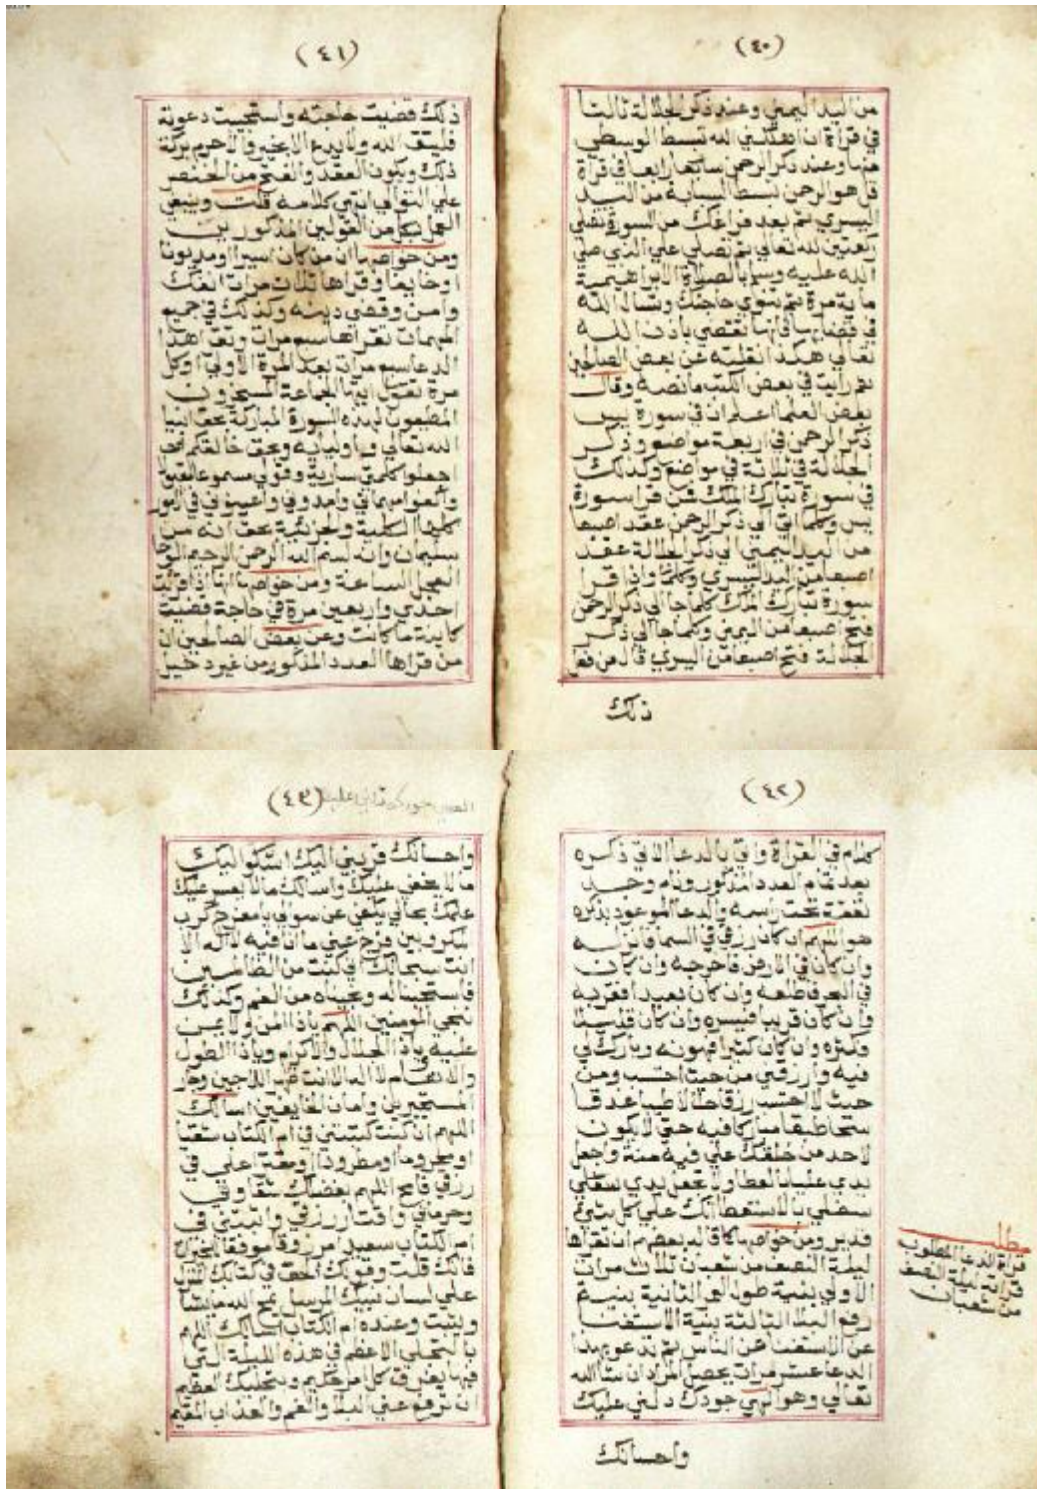 (٤٠)
من اليد اليمني وعند ذكر الجلالة ثالثا
في قراة ان اهلكني الله تبسط الوسطي
منها وعند ذكر الرحمن سابعا رابعا في قراة
قل هو الرحمن تبسط السبابة من اليد
اليسري ثم بعد فراغك من السورة تصلي
ركعتين لله تعالي ثم تصلي علي النبي صلي
الله عليه وسلم بالصلاة الابراهيمية
ماية مرة ثم تنوي حاجتك وتسال الله
في قضايها فانها تقتضي باذن الله
تعالي هكذا نقلته عن بعض الصالحين
ثم رايت في بعض الكتب مانصه وقال
بعض العلما اعلم ان في سورة يس
ذكر الرحمن في اربعة مواضع وذكر
الجلالة في ثلاثة مواضع وكذلك
في سورة تبارك الملك فمن قرا سورة
يس وكلما اتي الي ذكر الرحمن عقد اصبعا
من اليد اليمني الي ذكر الجلالة عقد
اصبعا من اليد اليسري وكلما واذا قرا
سورة تبارك الملك كلما جا الي ذكر الرحمن
فتح اصبعا من اليمني وكلما جا الي ذكر
الجلالة فتح اصبعا من اليسري قال من فعل
ذلك
(٤١)
ذلك قضيت حاجته واستجيبت دعوته
فليتق الله ولا يدع الا بخير ولا حرم بركة
ذلك ويكون العقد والفتح من الخنصر
علي التوالي انتهي كلامه قلت وينبغي
العمل بكل من القولين المذكورين
ومن خواصها ان من كان اسيرا او مديونا
او خايفا وقراها ثلاث مرات انفك
وامن وقضي دينه وكذلك في جميع
المهمات تقراها سبع مرات وتقرا هذا
الدعا سبع مرات بعد المرة الاولي او كل
مرة تقول ايتها الجماعة المسخرون
المطيعون لهذه السورة المباركة بحق انبيا
الله تعالي واوليايه وبحق خالقكم
اجعلوا كلمتي سارية وقولي مسموعا
واقضوا مهماتي وامدوني واعينوني في امور
كلها الكلية والجزئية بحق انه من
سليمان وانه بسم الله الرحمن الرحيم الوحا
العجل الساعة ومن خواصها انها اذا قريت
احدي واربعين مرة في حاجة قضيت
كاينة ما كانت وعن بعض الصالحين ان
من قراها العدد المذكور من غير دخيل
(٤٢)
كلام في القراة واتي بالدعا الاتي ذكره
بعد تمام العدد المذكور ونام وجد
نفقة تحت راسه والدعا الموعود بذكره
هو اللهم ان كان رزقي في السما فانزله
وان كان في الارض فاخرجه وان كان
في البحر فاطلعه وان كان بعيدا فقربه
وان كان قريبا فيسره وان كان قليلا
فكثره وان كان كثيرا فهونه وبارك لي
فيه وارزقني من حيث احتسب ومن
حيث لا احتسب رزقا حلالا طيبا غدقا
سحا طبقا مباركا فيه حتي لا يكون
لاحد من خلقك علي فيه منة واجعل
يدي عليا بالعطا ولا تجعل يدي سفلي
سفلي بالاستعطا انك علي كل شي
قدير ومن خواصها كما قاله بعضهم ان تقراها
ليلة النصف من شعبان ثلاث مرات
الاولي بنية طول العمر الثانية بنية
رفع البلا الثالثة بنية الاستغنا
عن الاستغنا عن الناس ثم تدعو بهذا
الدعا عشر مرات يحصل المراد ان شا الله
تعالي وهو الهي جودك دلني عليك
واحسانك
مطلب
قراة الدعا المطلوب
قراته ليلة النصف
من شعبان
(٤٣)
واحسانك قربني اليك اشكو اليك
ما لا يخفي عليك واسالك ما لا يعسر عليك
علمك بحالي يكفي عن سوالي يا مفرج كرب
المكروبين فرج عني ما انا فيه لا اله الا
انت سبحانك اني كنت من الظالمين
فاستجبنا له ونجيناه من الغم وكذلك
ننجي المومنين اللهم ياذا المن ولا يمن
عليه ياذا الجلال والاكرام وياذا الطول
والانعام لا اله الا انت ظهر اللاجين وجار
المستجيرين وامان الخايفين اسالك
اللهم ان كنت كتبتني في ام الكتاب شقيا
او محروما او مطرودا او مقترا علي في
رزقي فامح اللهم بفضلك شقاوتي
وحرماني واقتار رزقي واثبتني في
ام الكتاب سعيدا مرزوقا موفقا للخيرات
فانك قلت وقولك الحق في كتابك المنزل
علي لسان نبيك المرسل يمح الله ما يشا
ويثبت وعنده ام الكتاب اسالك اللهم
بالتجلي الاعظم في هذه الليلة التي
فيها يفرق كل امر حكيم وبتجليك العظيم
ان ترفع عني البلا والغم والعذاب المقيم